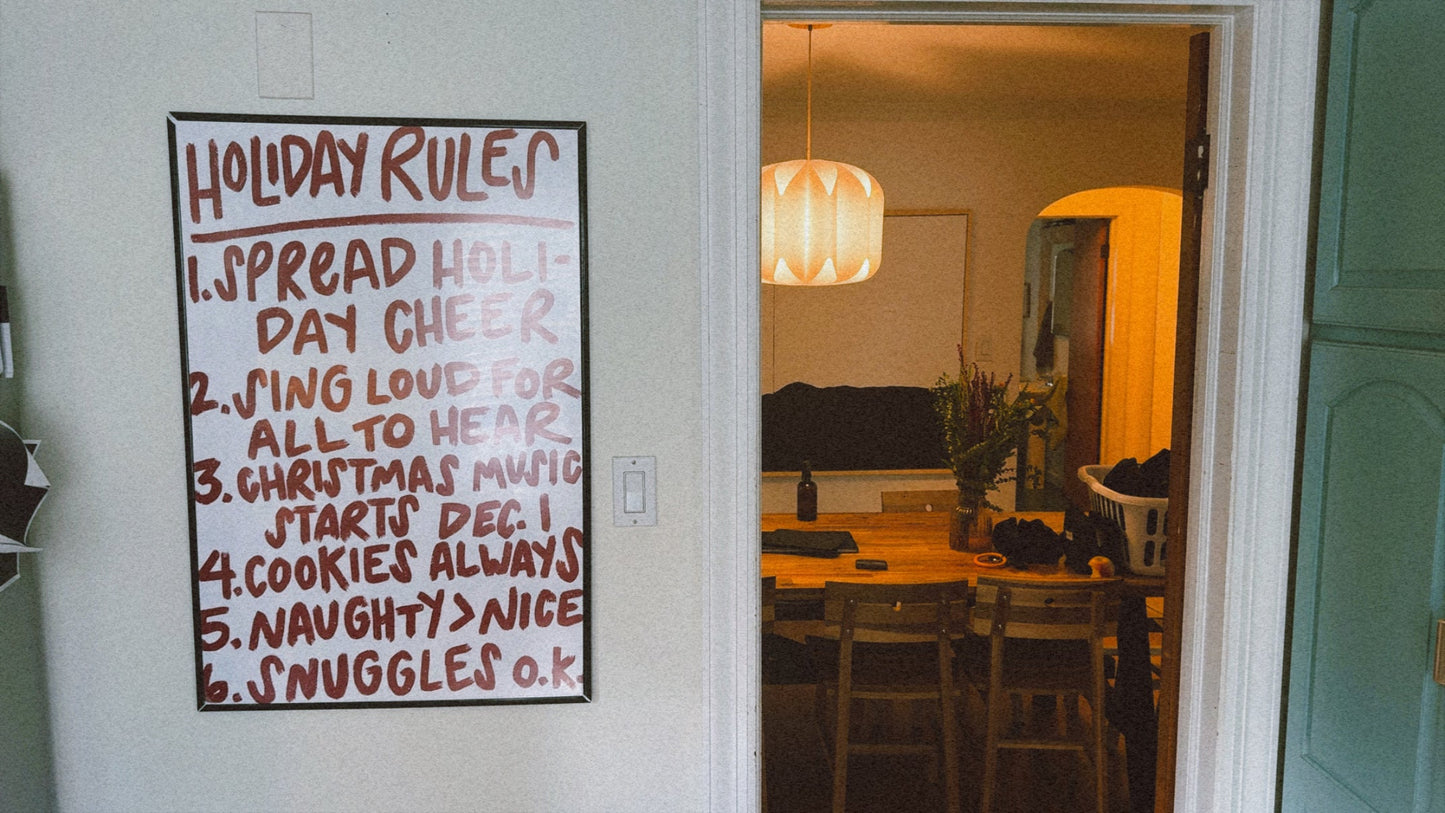 HOLIDAY RULES
1. SPREAD HOLI-
DAY CHEER
2. SING LOUD FOR
ALL TO HEAR
3. CHRISTMAS MUSIC
STARTS DEC. 1
4. COOKIES ALWAYS
5. NAUGHTY > NICE
6. SNUGGLES O.K.